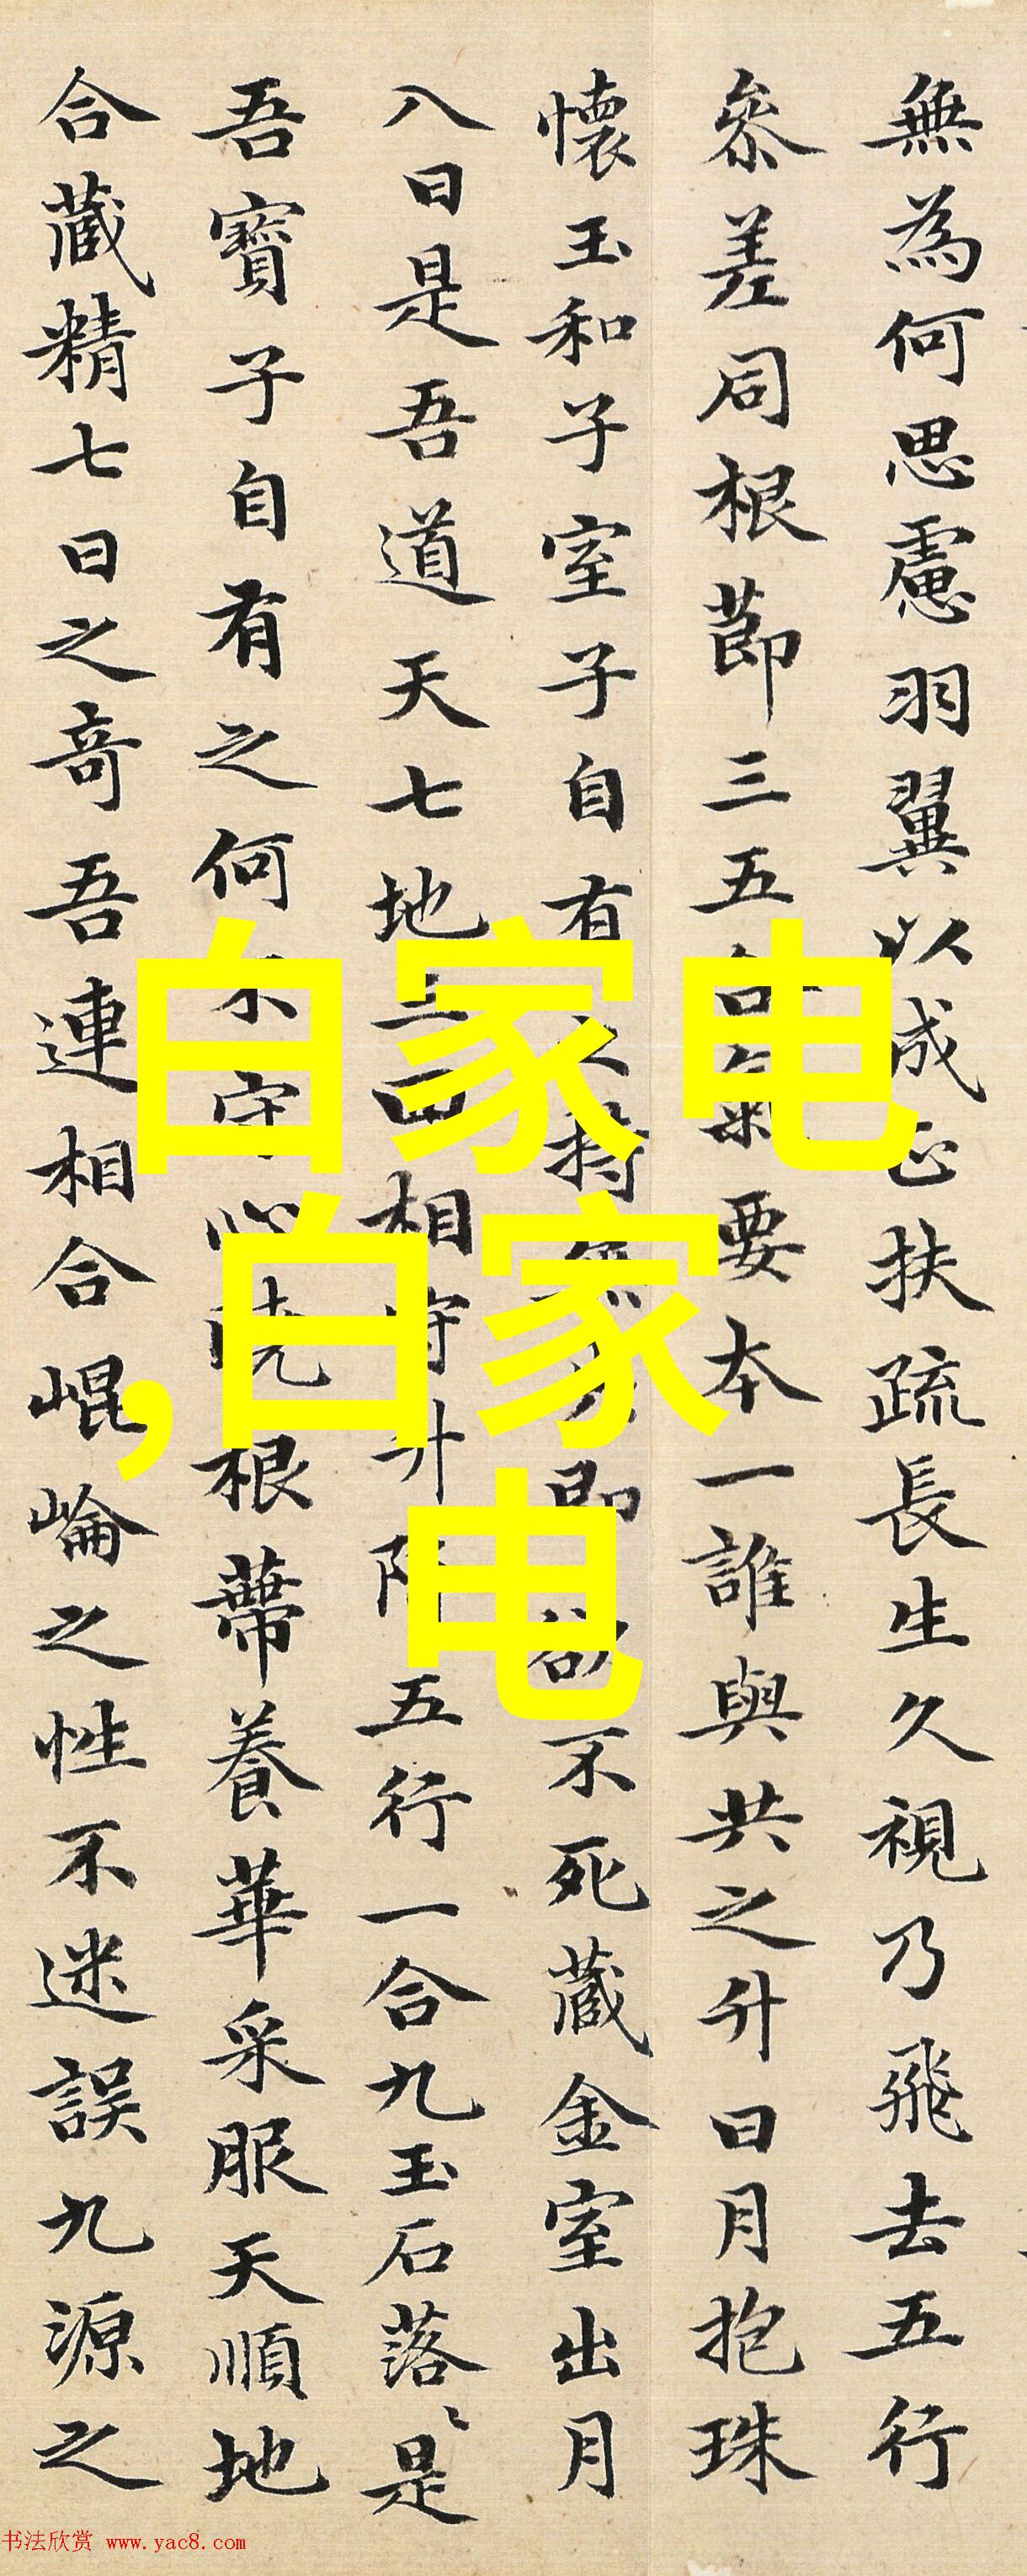 無為何思慮羽翼以成正扶疏長生久視乃飛去五行
參差同根莭三五合氣要本一誰與共之升日月抱珠
懷玉和子室子自有之持無失即欲不死藏金室出月
入日是吾道天七地三回相守升降五行一合九玉石落〻是
吾寶子自有之何不守心曉根蔕養華采服天順地
合藏精七日之奇吾連相合崐崘之性不迷誤九源之
白家电
,白家
电
书法欣赏 www.yac8.com